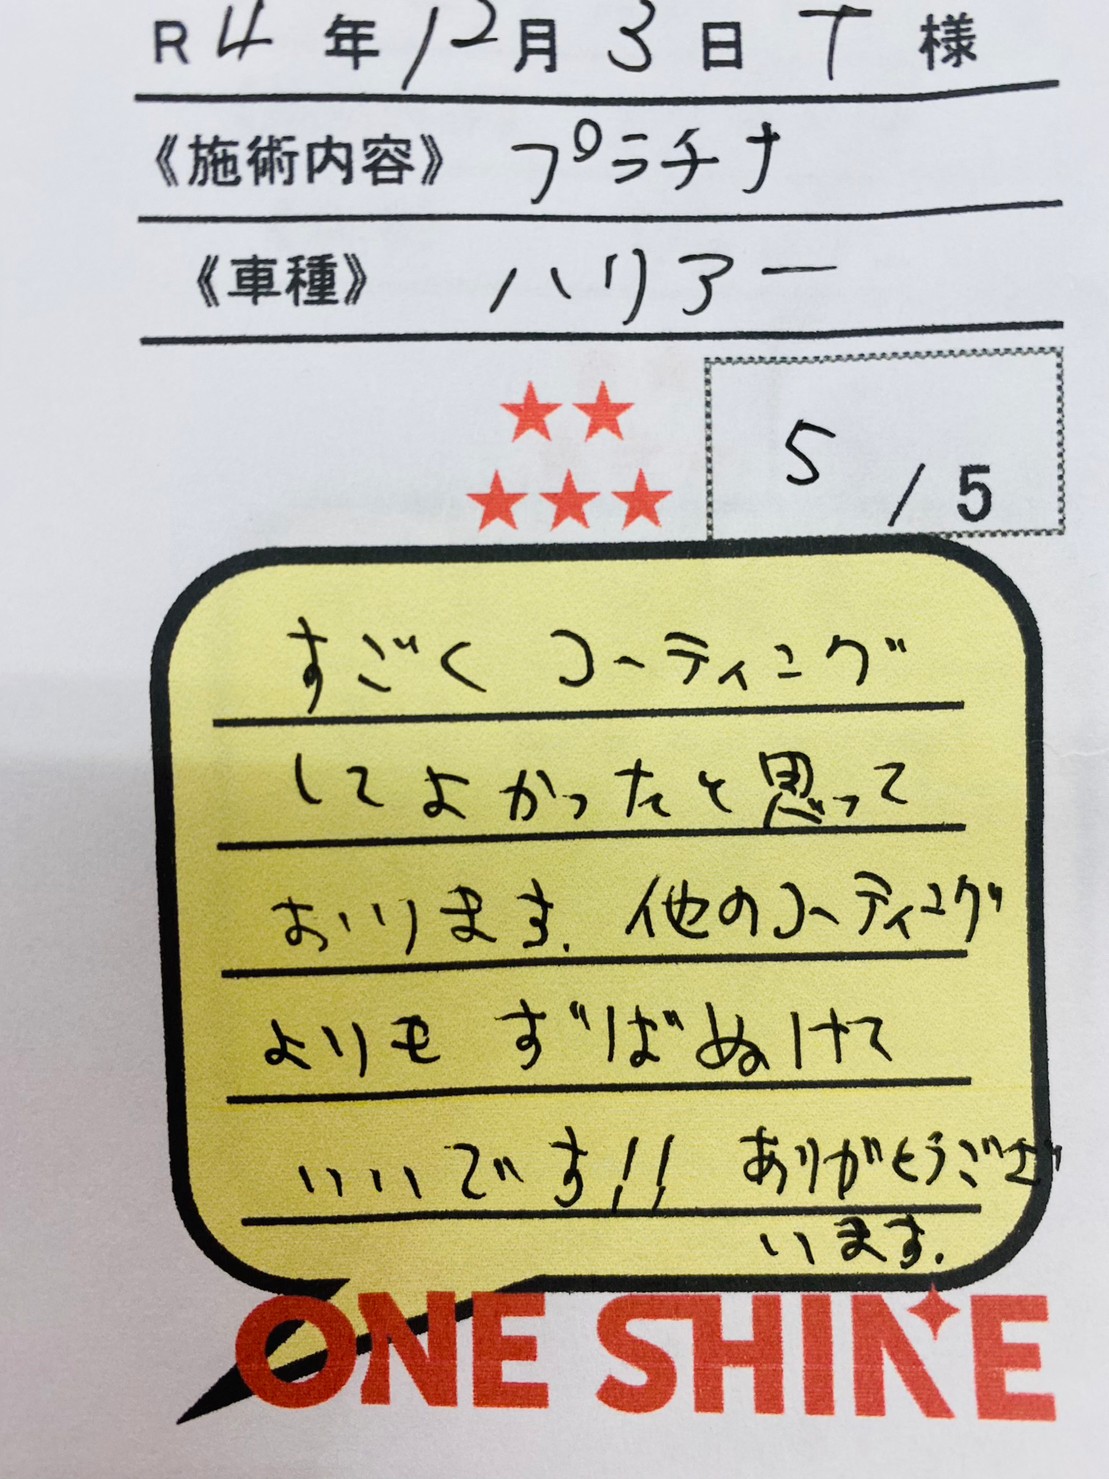 R4年12月3日 T様
《施術内容》 プラチナ
《車種》 ハリアー
★★
★★★
5/5
すごく コーティング
してよかったと思って
おります. 他のコーティング
よりも ずばぬけて
いいです!! ありがとうござ
います.
ONE SHINE